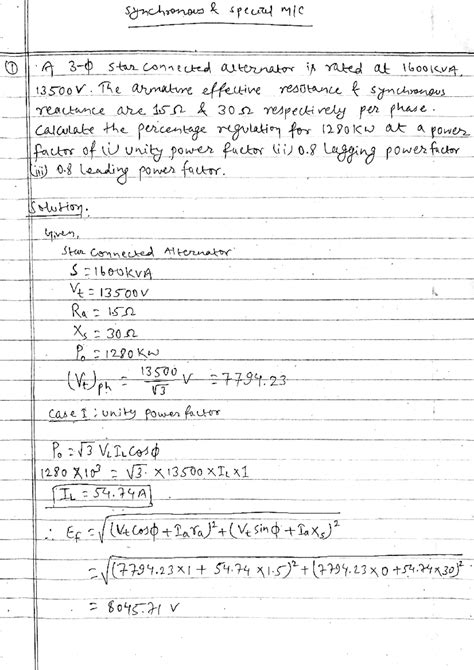 Synchronous & special M/C
① A 3-ϕ star connected alternator is rated at 1600KVA,
13500V. The armature effective resistance & synchronous
reactance are 1.5Ω & 30Ω respectively per phase.
Calculate the percentage regulation for 1280KW at a power
factor of (i) unity power factor (ii) 0.8 Lagging power factor
(iii) 0.8 leading power factor.
Solution.
Given,
Star Connected Alternator
S = 1600KVA
Vt = 13500V
Ra = 1.5Ω
Xs = 30Ω
Po = 1280KW
(Vt)ph = 13500/√3 V = 7794.23
Case I : unity power factor
Po = √3 VL IL Cosϕ
1280 × 10³ = √3 × 13500 × IL × 1
IL = 54.74A
∴ Ef = √(Vt cosϕ + Ia ra)² + (Vt sinϕ + Ia Xs)²
= √(7794.23×1 + 54.74×1.5)² + (7794.23×0 + 54.74×30)²
= 8045.71 V